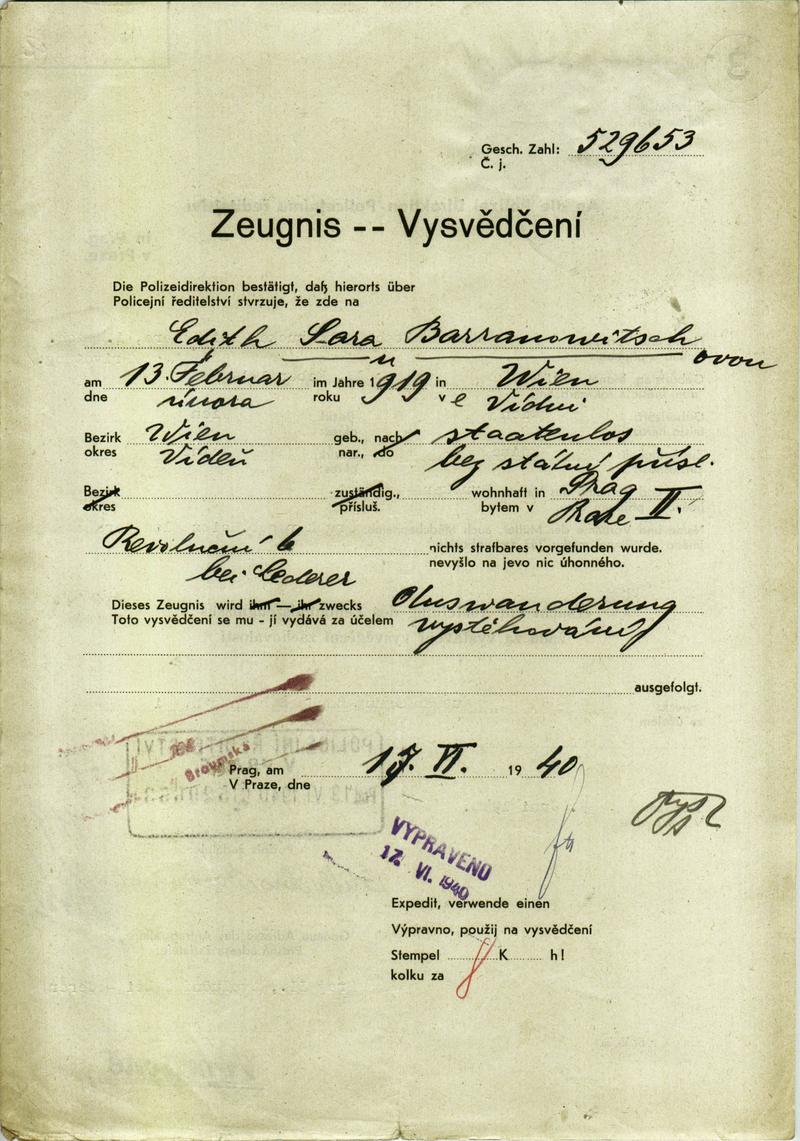 Gesch. Zahl: 529653
Č. j.
Zeugnis -- Vysvědčení
Die Polizeidirektion bestätigt, daß hierorts über
Policejní ředitelství stvrzuje, že zde na
Edith Sara Barranowitsch
ovou
am 13. Februar im Jahre 1919 in Wien
dne února roku v e Vídni
Bezirk Wien geb., nach staatenlos
okres Vídeň nar., do bez státní přísl.
Bezirk zuständig., wohnhaft in Prag II.
okres přísluš. bytem v Praze
Revoluční 6 nichts strafbares vorgefunden wurde.
bei Lederer nevyšlo na jevo nic úhonného.
Dieses Zeugnis wird ihm — ihr zwecks Auswanderung
Toto vysvědčení se mu - jí vydává za účelem vystěhování
ausgefolgt.
Broumska
Prag, am 17. VI. 1940
V Praze, dne
VYPRAVENO
17. VI. 1940
Expedit, verwende einen
Výpravno, použij na vysvědčení
Stempel 8 K h!
kolku za